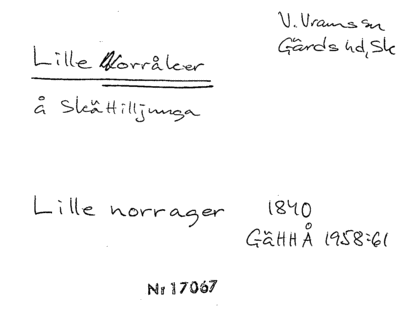 V. Vram ssn
Gärds hd, Sk
Lille Norråker
å Skättilljunga
Lille norrager 1840
GäHHÅ 1958:61
Nr 17067